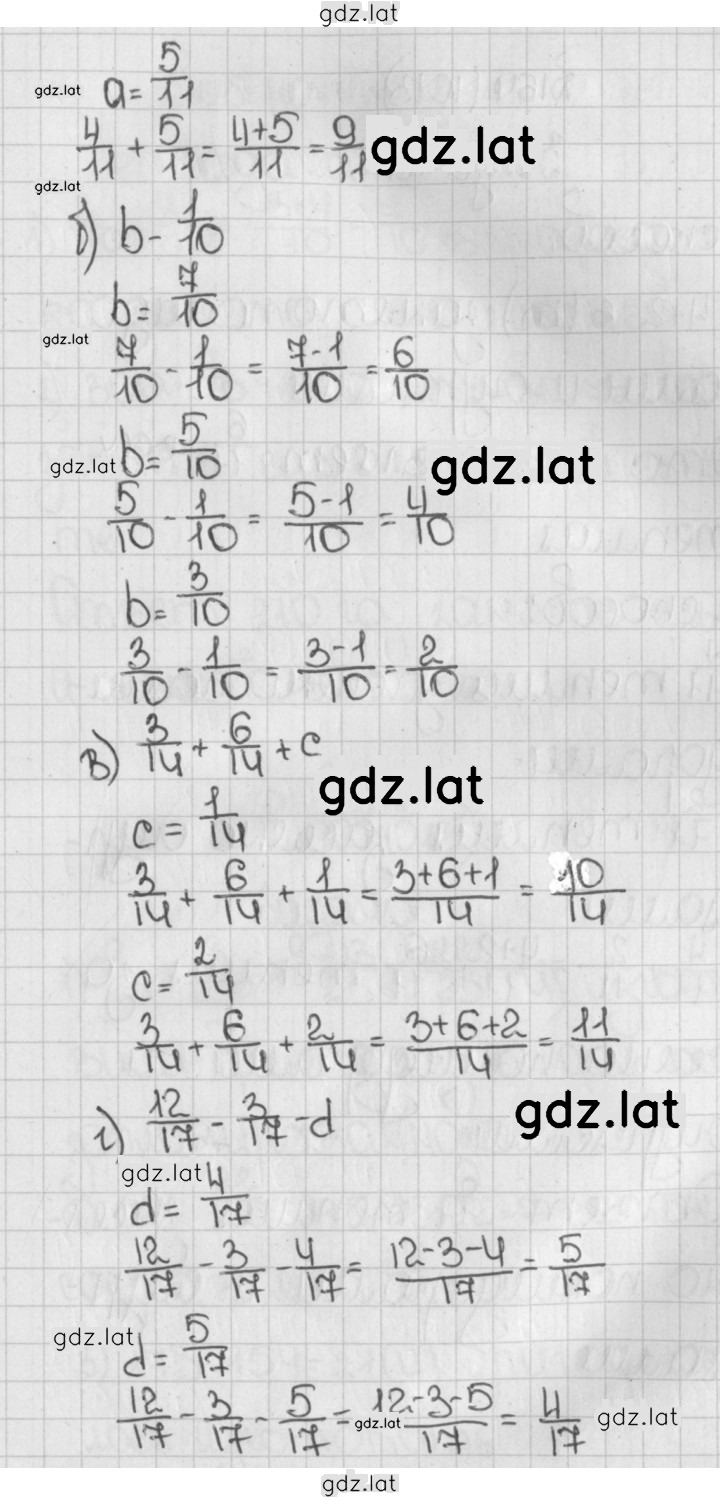 gdz.lat
gdz.lat a = 5/11
4/11 + 5/11 = (4+5)/11 = 9/11 gdz.lat
gdz.lat
б) b - 1/10
b = 7/10
gdz.lat
7/10 - 1/10 = (7-1)/10 = 6/10
gdz.lat b = 5/10 gdz.lat
5/10 - 1/10 = (5-1)/10 = 4/10
b = 3/10
3/10 - 1/10 = (3-1)/10 = 2/10
в) 3/14 + 6/14 + c
gdz.lat
c = 1/14
3/14 + 6/14 + 1/14 = (3+6+1)/14 = 10/14
c = 2/14
3/14 + 6/14 + 2/14 = (3+6+2)/14 = 11/14
г) 12/17 - 3/17 - d gdz.lat
gdz.lat
d = 4/17
12/17 - 3/17 - 4/17 = (12-3-4)/17 = 5/17
gdz.lat
d = 5/17
12/17 - 3/17 - 5/17 = (12-3-5)/17 = 4/17
gdz.lat gdz.lat
gdz.lat